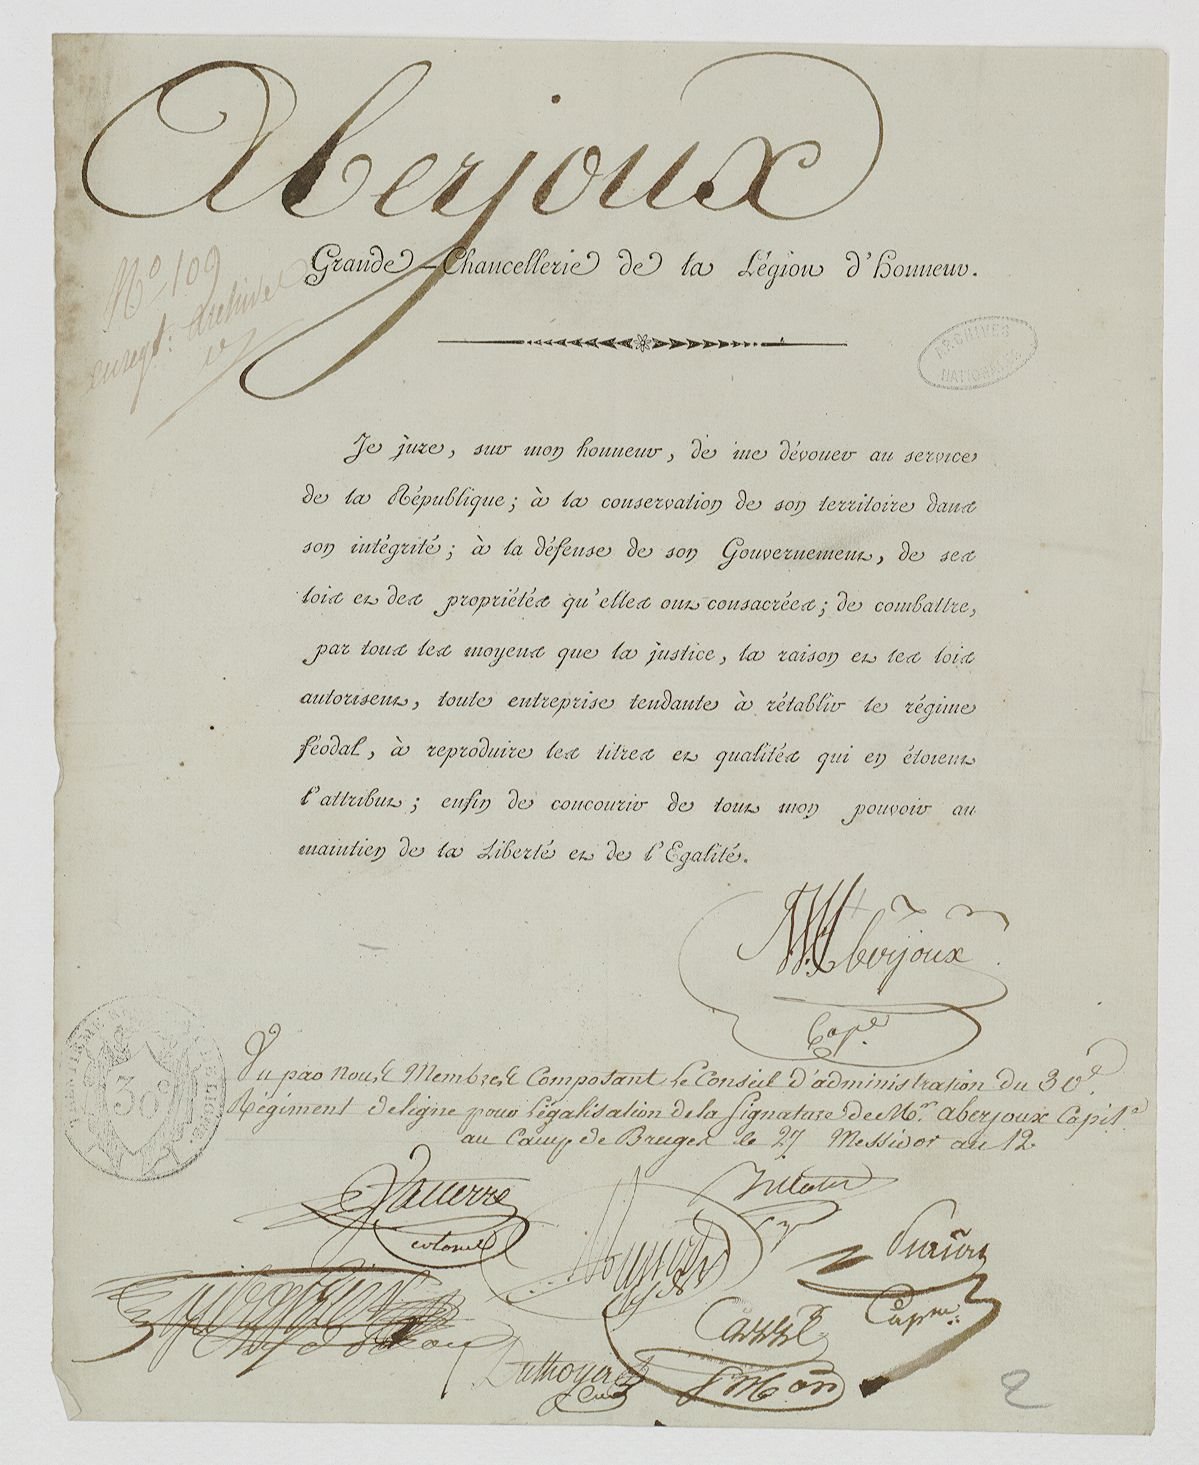 Aberjoux
Grande Chancellerie de la Légion d'honneur.
N° 109
enregt. archives
ARCHIVES
NATIONALES
Je jure, sur mon honneur, de me dévouer au service
de la République; à la conservation de son territoire dans
son intégrité; à la défense de son Gouvernement, de ses
lois et des propriétés qu'elles ont consacrées; de combattre,
par tous les moyens que la justice, la raison et les lois
autorisent, toute entreprise tendante à rétablir le régime
féodal, à reproduire les titres et qualités qui en étoient
l'attribut; enfin de concourir de tout mon pouvoir au
maintien de la Liberté et de l'Egalité.
Aberjoux
Cape.
30
Vu par nous Membres Composant le Conseil d'administration du 30e
Régiment de ligne pour Légalisation de la Signature de Mr. Aberjoux Capit.e
au Camp de Bruges le 27 Messidor an 12
colonel
Carré
2